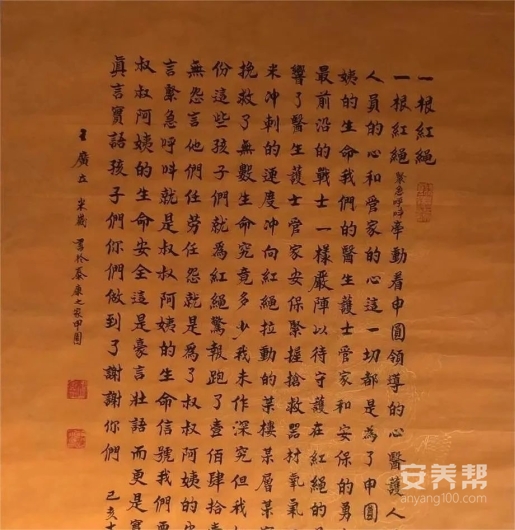 一根紅繩
一根紅繩緊急呼叫牽動着申園領導的心醫護人
人員的心和管家的心這一切都是為了申園
姨的生命我們的醫生護士管家和安保的勇
最前沿的戰士一樣嚴陣以待守護在紅繩的
響了醫生護士管家安保緊握搶救器材氧氣
米冲刺的速度冲向紅繩拉動的某樓某層某
挽救了無數生命究竟多少我未作深究但我
份這些孩子們就為紅繩驚報跑了壹佰肆拾
無怨言他們任勞任怨就是為了叔叔阿姨的
言緊急呼叫就是叔叔阿姨的生命信號我們要
叔叔阿姨的生命安全這是豪言壯語而更是
真言實語孩子們你們做到了謝謝你們 己亥十
王廣立 米歲書於泰康之家申園
安养帮
anyang100.com